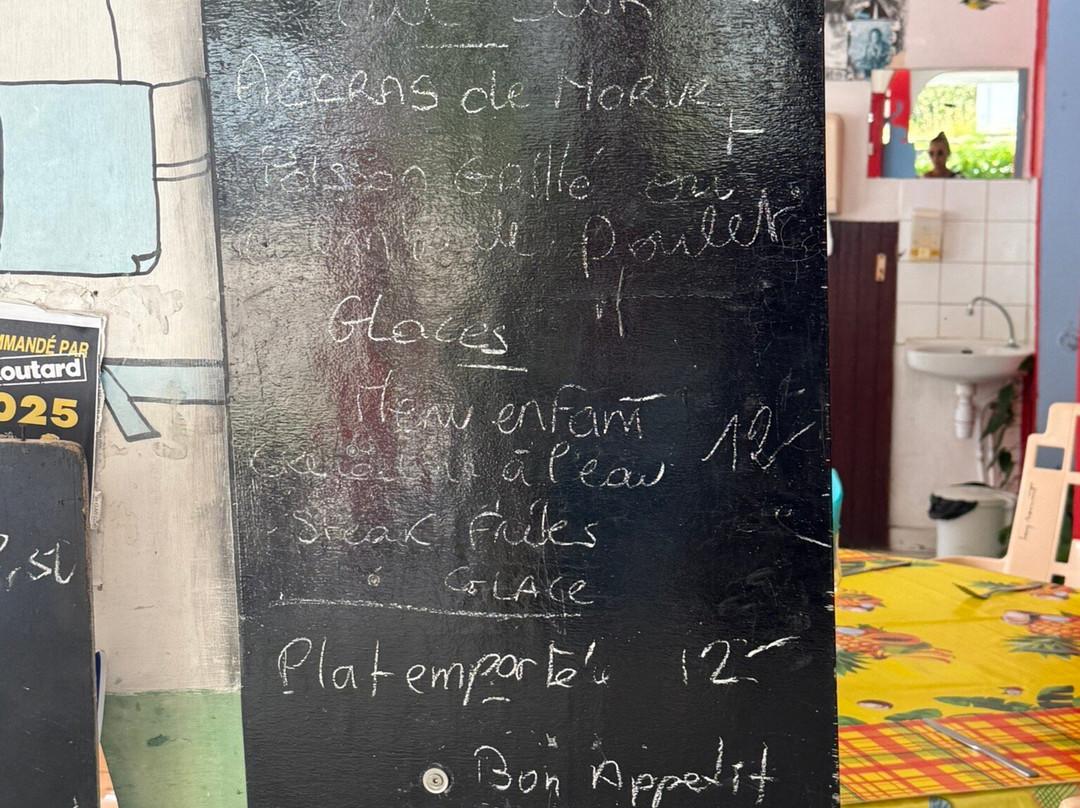 Accras de Morue
+
Poisson Grillé ou
de Poulet
Glaces
Menu enfant 12
à l'eau
Steak frites
GLACE
Plat emporté 12
Bon Appetit
MMANDÉ PAR
outard
025